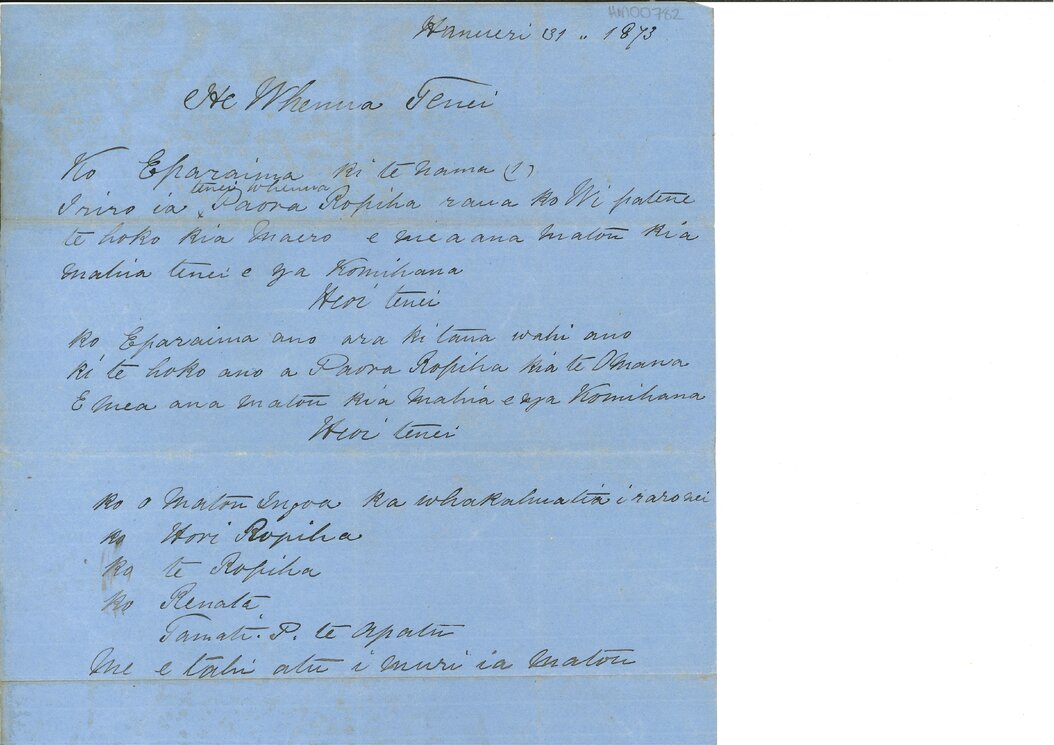 HN100782
Hanueri 31 .. 1873
He Whenua Tenei
Ko Eparaima ki te nama (1)
I riro ia tenei whenua Paora Ropiha raua ko Wi patene
te hoko kia Maero e mea ana matou kia
mahia tenei e nga Komihana
Heoi tenei
ko Eparaima ano ara ki tana wahi ano
ki te hoko ano a Paora Ropiha kia te Omana
E mea ana matou kia mahia e nga Komihana
Heoi tenei
ko o Matou Ingoa ka whakahuatia i raro nei
ko Hori Ropiha
ko te Ropiha
ko Renata
Tamati. P. te Apatu
Me e tahi atu i muri ia matou